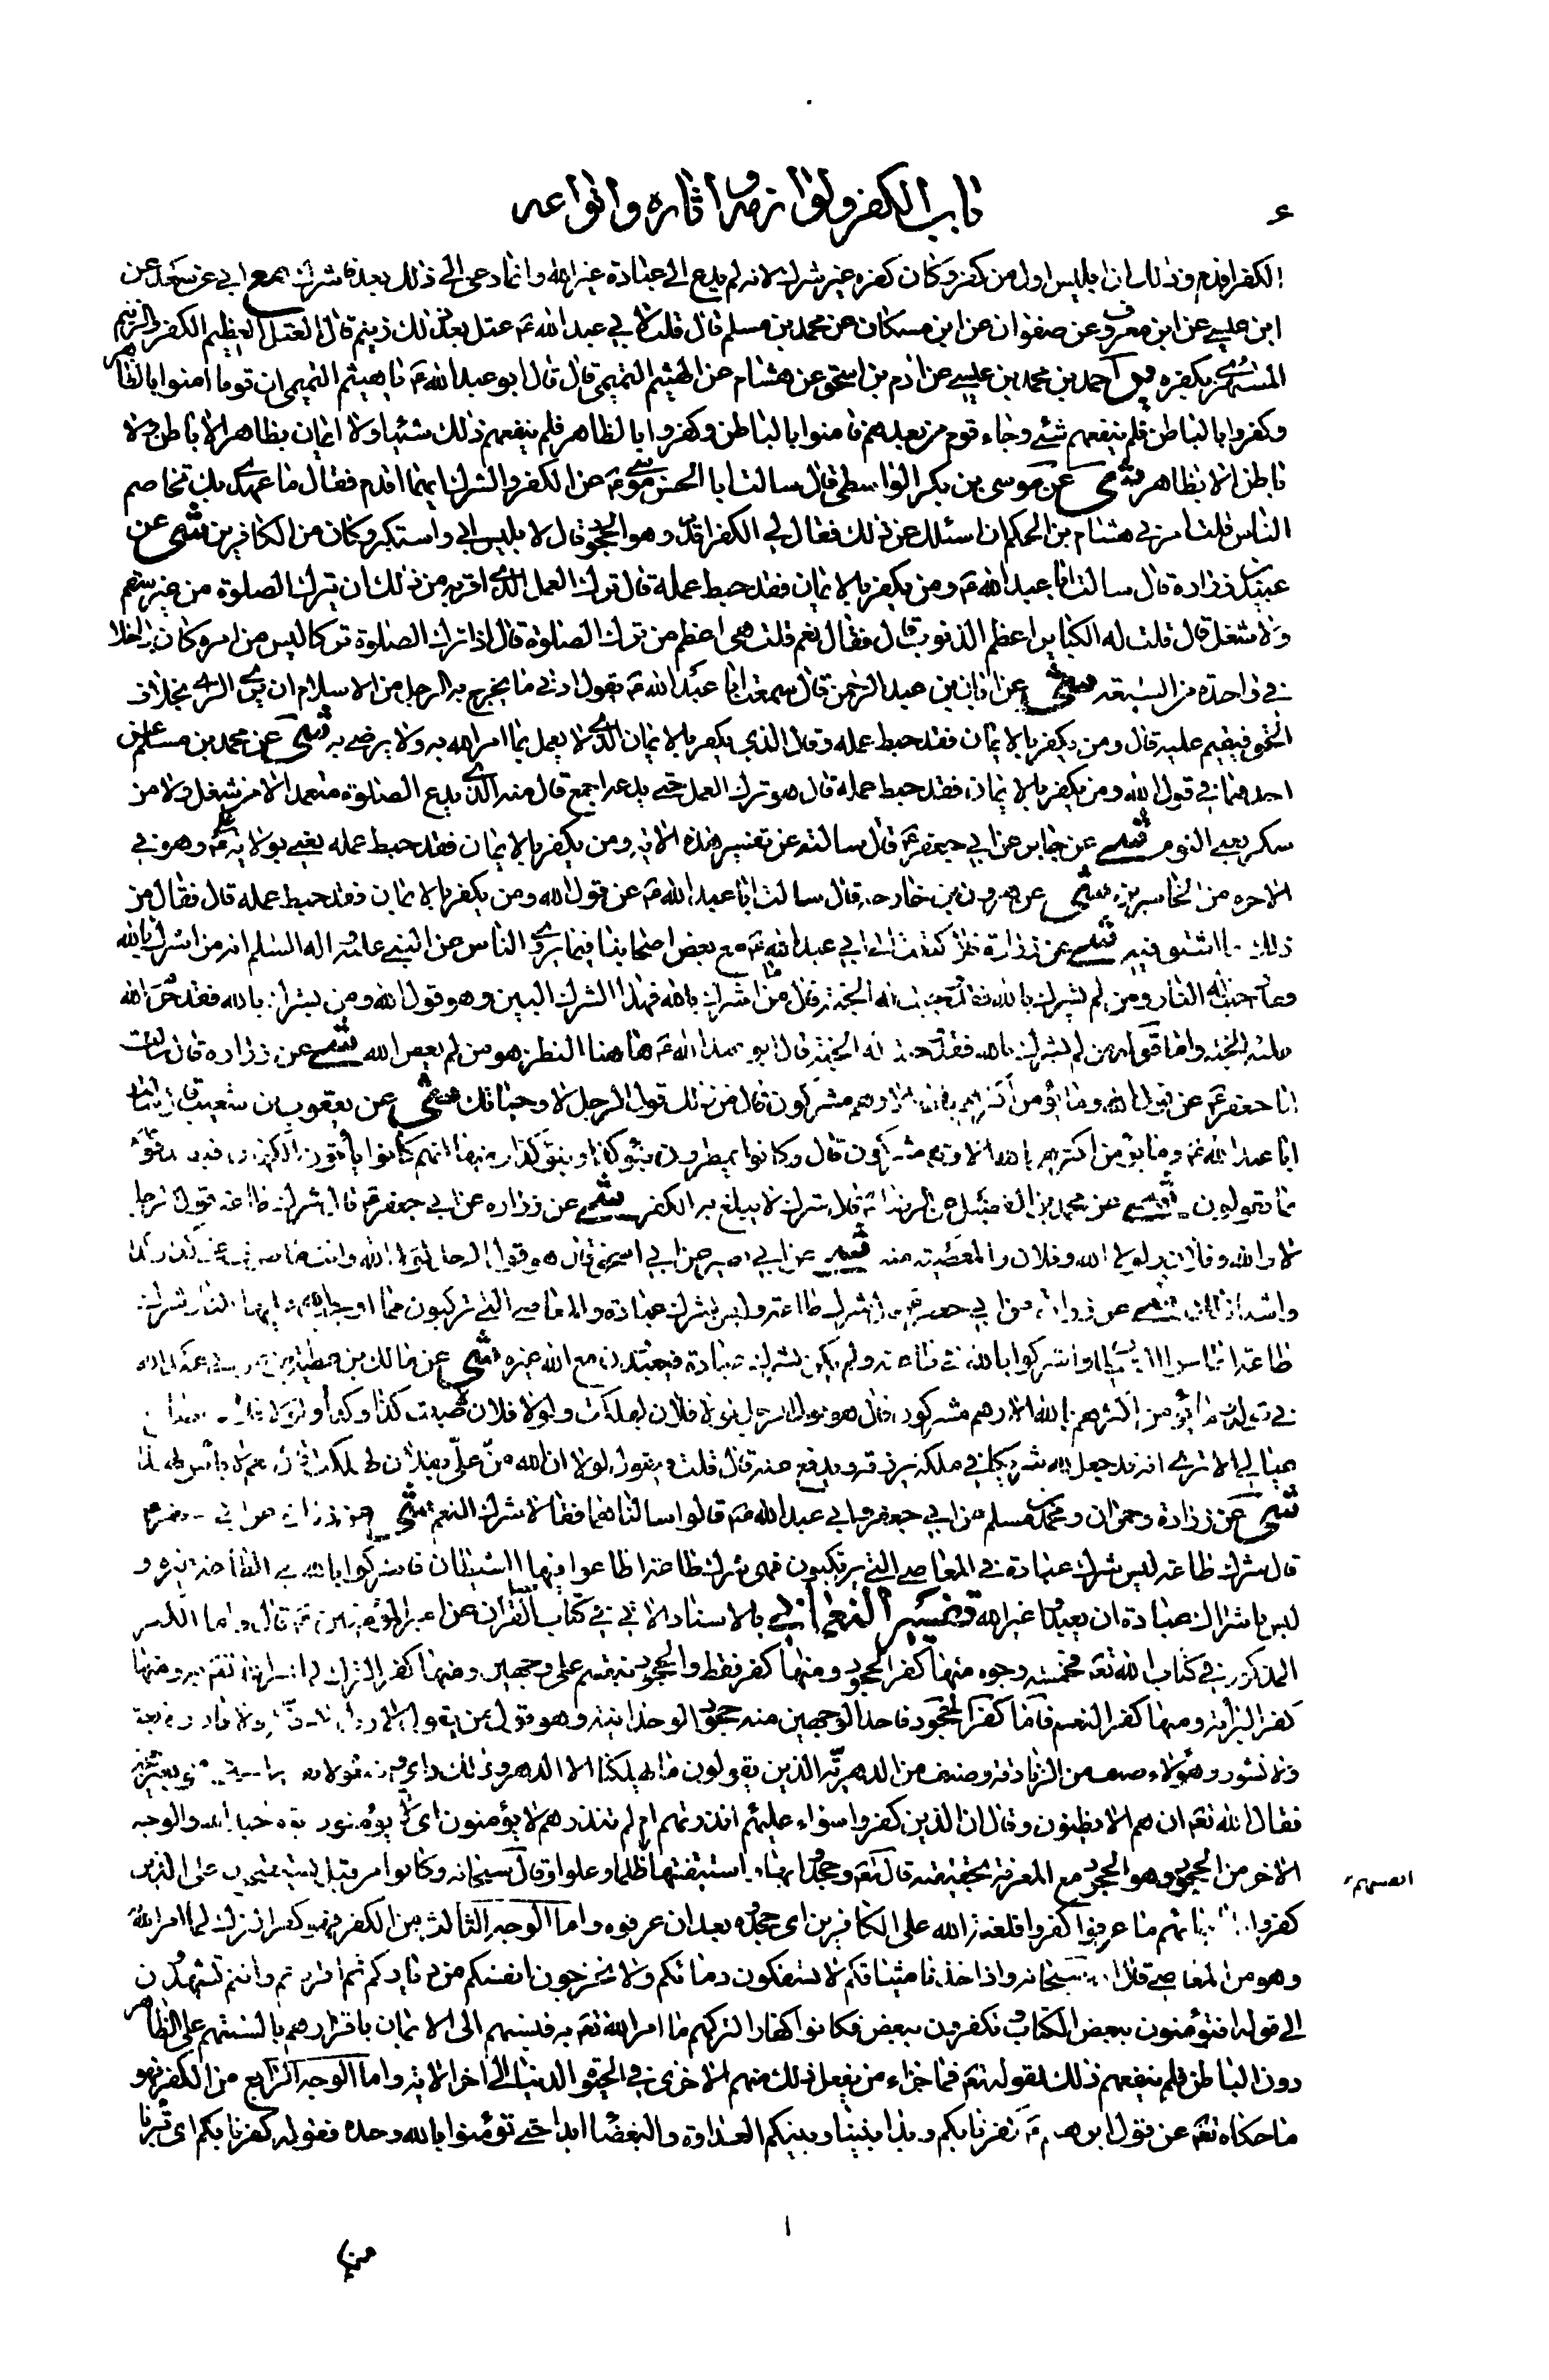 باب الكفر ولوازمه وآثاره وانواعه
الكفر اقدم وذلك ان ابليس اول من كفر وكان كفره غير شرك لانه لم يدع الى عبادة غير الله وانما دعى الى ذلك بعد فاشرك مع ابي عن سعد عن
ابن عيسى عن ابن معروف عن صفوان عن ابن مسكان عن محمد بن مسلم قال قلت لابي عبد الله ع عتل بعد ذلك زنيم قال العتل العظيم الكفر والزنيم
المستهزئ بكفره ير احمد بن محمد بن عيسى عن ادم بن اسحق عن هشام عن الهيثم التميمي قال قال ابو عبد الله ع يا هيثم التميمي ان قوما امنوا بالظاهر
وكفروا بالباطن فلم ينفعهم شئ وجاء قوم من بعدهم فامنوا بالباطن وكفروا بالظاهر فلم ينفعهم ذلك شيئا ولا ايمان بظاهر الا بباطن ولا
باطن الا بظاهر شى عن موسى بن بكر الواسطي قال سالت ابا الحسن موسى ع عن الكفر والشرك ايهما اقدم فقال ما عهدي بك تخاصم
الناس قلت امرني هشام بن الحكم ان اسئلك عن ذلك فقال لي الكفر اقدم وهو الجحود قال لابليس ابى واستكبر وكان من الكافرين شى عن
عبيد بن زرارة قال سالت ابا عبد الله ع ومن يكفر بالايمان فقد حبط عمله قال ترك العمل الذي اقر به من ذلك ان يترك الصلوة من غير سقم
ولا شغل قال قلت له الكباير اعظم الذنوب قال فقال نعم قلت هي اعظم من ترك الصلوة قال اذا ترك الصلوة تركا ليس من امره كان داخلا
في واحدة من السبعة شى عن ابان بن عبد الرحمن قال سمعت ابا عبد الله ع يقول ادنى ما يخرج به الرجل من الاسلام ان يرى الراي بخلاف
الحق فيقيم عليه قال ومن يكفر بالايمان فقد حبط عمله وقال الذي يكفر بالايمان الذي لا يعمل بما امر الله به ولا يرضى به شى عن محمد بن مسلم عن
احدهما في قول الله ومن يكفر بالايمان فقد حبط عمله قال هو ترك العمل حتى يدعه اجمع قال منه الذي يدع الصلوة متعمدا لا من شغل ولا من
سكر يعني النوم شى عن جابر عن ابي جعفر ع قال سالته عن تفسير هذه الاية ومن يكفر بالايمان فقد حبط عمله يعني بولاية علي ع وهو في
الاخرة من الخاسرين شى عن هرون بن خارجه قال سالت ابا عبد الله ع عن قول الله ومن يكفر بالايمان فقد حبط عمله قال فقال من
ذلك ما اشتق فيه شى عن زرارة قال كتبت الى ابي عبد الله ع مع بعض اصحابنا فيما يروي الناس عن النبي عليه واله السلام انه من اشرك بالله
وجبت له النار ومن لم يشرك بالله فقد وجبت له الجنة قال اما من اشرك بالله فهذا الشرك البين وهو قول الله ومن يشرك بالله فقد حرم الله
عليه الجنة واما قوله من لم يشرك بالله فقد وجبت له الجنة قال ابو عبد الله ع هاهنا النظر هو من لم يعص الله شى عن زرارة قال سالت
ابا جعفر ع عن قول الله وما يؤمن اكثرهم بالله الا وهم مشركون قال من ذلك قول الرجل لا وحياتك شى عن يعقوب بن شعيب قال سالت
ابا عبد الله ع وما يؤمن اكثرهم بالله الا وهم مشركون قال كانوا
شى عن محمد بن الفضيل عن الرضا ع قال شرك لا يبلغ به الكفر شى عن زرارة عن ابي جعفر ع قال شرك طاعة قول الرجل
لا والله وفلان ولولا الله وفلان والمعصية منه شى عن ابي بصير عن ابي اسحق قال هو قول الرجل لولا الله وانت
شى عن زرارة عن ابي جعفر ع قال شرك طاعة وليس بشرك عبادة والمعاصي التي تركبون مما اوجب
واشركوا بالله في طاعته ولم يكن بشرك عبادة فيعبدون مع الله غيره شى عن مالك بن عطية
وما يؤمن اكثرهم بالله الا وهم مشركون قال هو قول الرجل لولا فلان لهلكت ولولا فلان لاصبت كذا وكذا ولولا فلان
عيالي الا ترى انه قد جعل لله شريكا في ملكه يرزقه ويدفع عنه قال قلت فيقول لولا ان الله من علي بفلان لهلكت قال نعم لا باس بهذا
شى عن زرارة وحمران ومحمد بن مسلم عن ابي جعفر وابي عبد الله ع قالوا سالناهما فقالا شرك النعم شى عن زرارة عن ابي جعفر ع
قال شرك طاعة ليس شرك عبادة في المعاصي التي يرتكبون فهي شرك طاعة اطاعوا فيها الشيطان فاشركوا بالله في الطاعة غيره و
ليس باشراك عبادة ان يعبدوا غير الله تفسير النعماني بالاسناد الاتي في كتاب القران عن امير المؤمنين ع قال واما الكفر
المذكور في كتاب الله تعه فخمسة وجوه منها كفر الجحود ومنها كفر فقط والجحود ينقسم على وجهين ومنها كفر الترك لما امر الله تعه به ومنها
كفر البرائة ومنها كفر النعم فاما كفر الجحود فاحد الوجهين منه جحود الوحدانية وهو قول من يقول لا رب ولا جنة ولا نار ولا بعث
ولا نشور وهؤلاء صنف من الزنادقة وصنف من الدهرية الذين يقولون ما يهلكنا الا الدهر وذلك راي
فقال الله تعه ان هم الا يظنون وقال ان الذين كفروا سواء عليهم اانذرتهم ام لم تنذرهم لا يؤمنون اي لا يؤمنون بتوحيد الله والوجه
الاخر من الجحود هو الجحود مع المعرفة بحقيقته قال تعه وجحدوا بها واستيقنتها ظلما وعلوا وقال سبحانه وكانوا من قبل يستفتحون على الذين
انفسهم
كفروا فلما جائهم ما عرفوا كفروا به فلعنة الله على الكافرين اي جحدوه بعد ان عرفوه واما الوجه الثالث من الكفر فهو كفر الترك لما امر الله
وهو من المعاصي قال الله سبحانه واذ اخذنا ميثاقكم لا تسفكون دمائكم ولا تخرجون انفسكم من دياركم ثم اقررتم وانتم تشهدون
الى قوله افتؤمنون ببعض الكتاب وتكفرون ببعض فكانوا كفارا لتركهم ما امر الله تعه به فنسبهم الى الايمان باقرارهم بالسنتهم على الظاهر
دون الباطن فلم ينفعهم ذلك لقوله تعه فما جزاء من يفعل ذلك منهم الا خزي في الحيوة الدنيا الى اخر الاية واما الوجه الرابع من الكفر فهو
ما حكاه تعه عن قول ابرهيم ع كفرنا بكم وبدا بيننا وبينكم العداوة والبغضا ابدا حتى تؤمنوا بالله وحده فقوله كفرنا بكم اي تبرانا
منكم